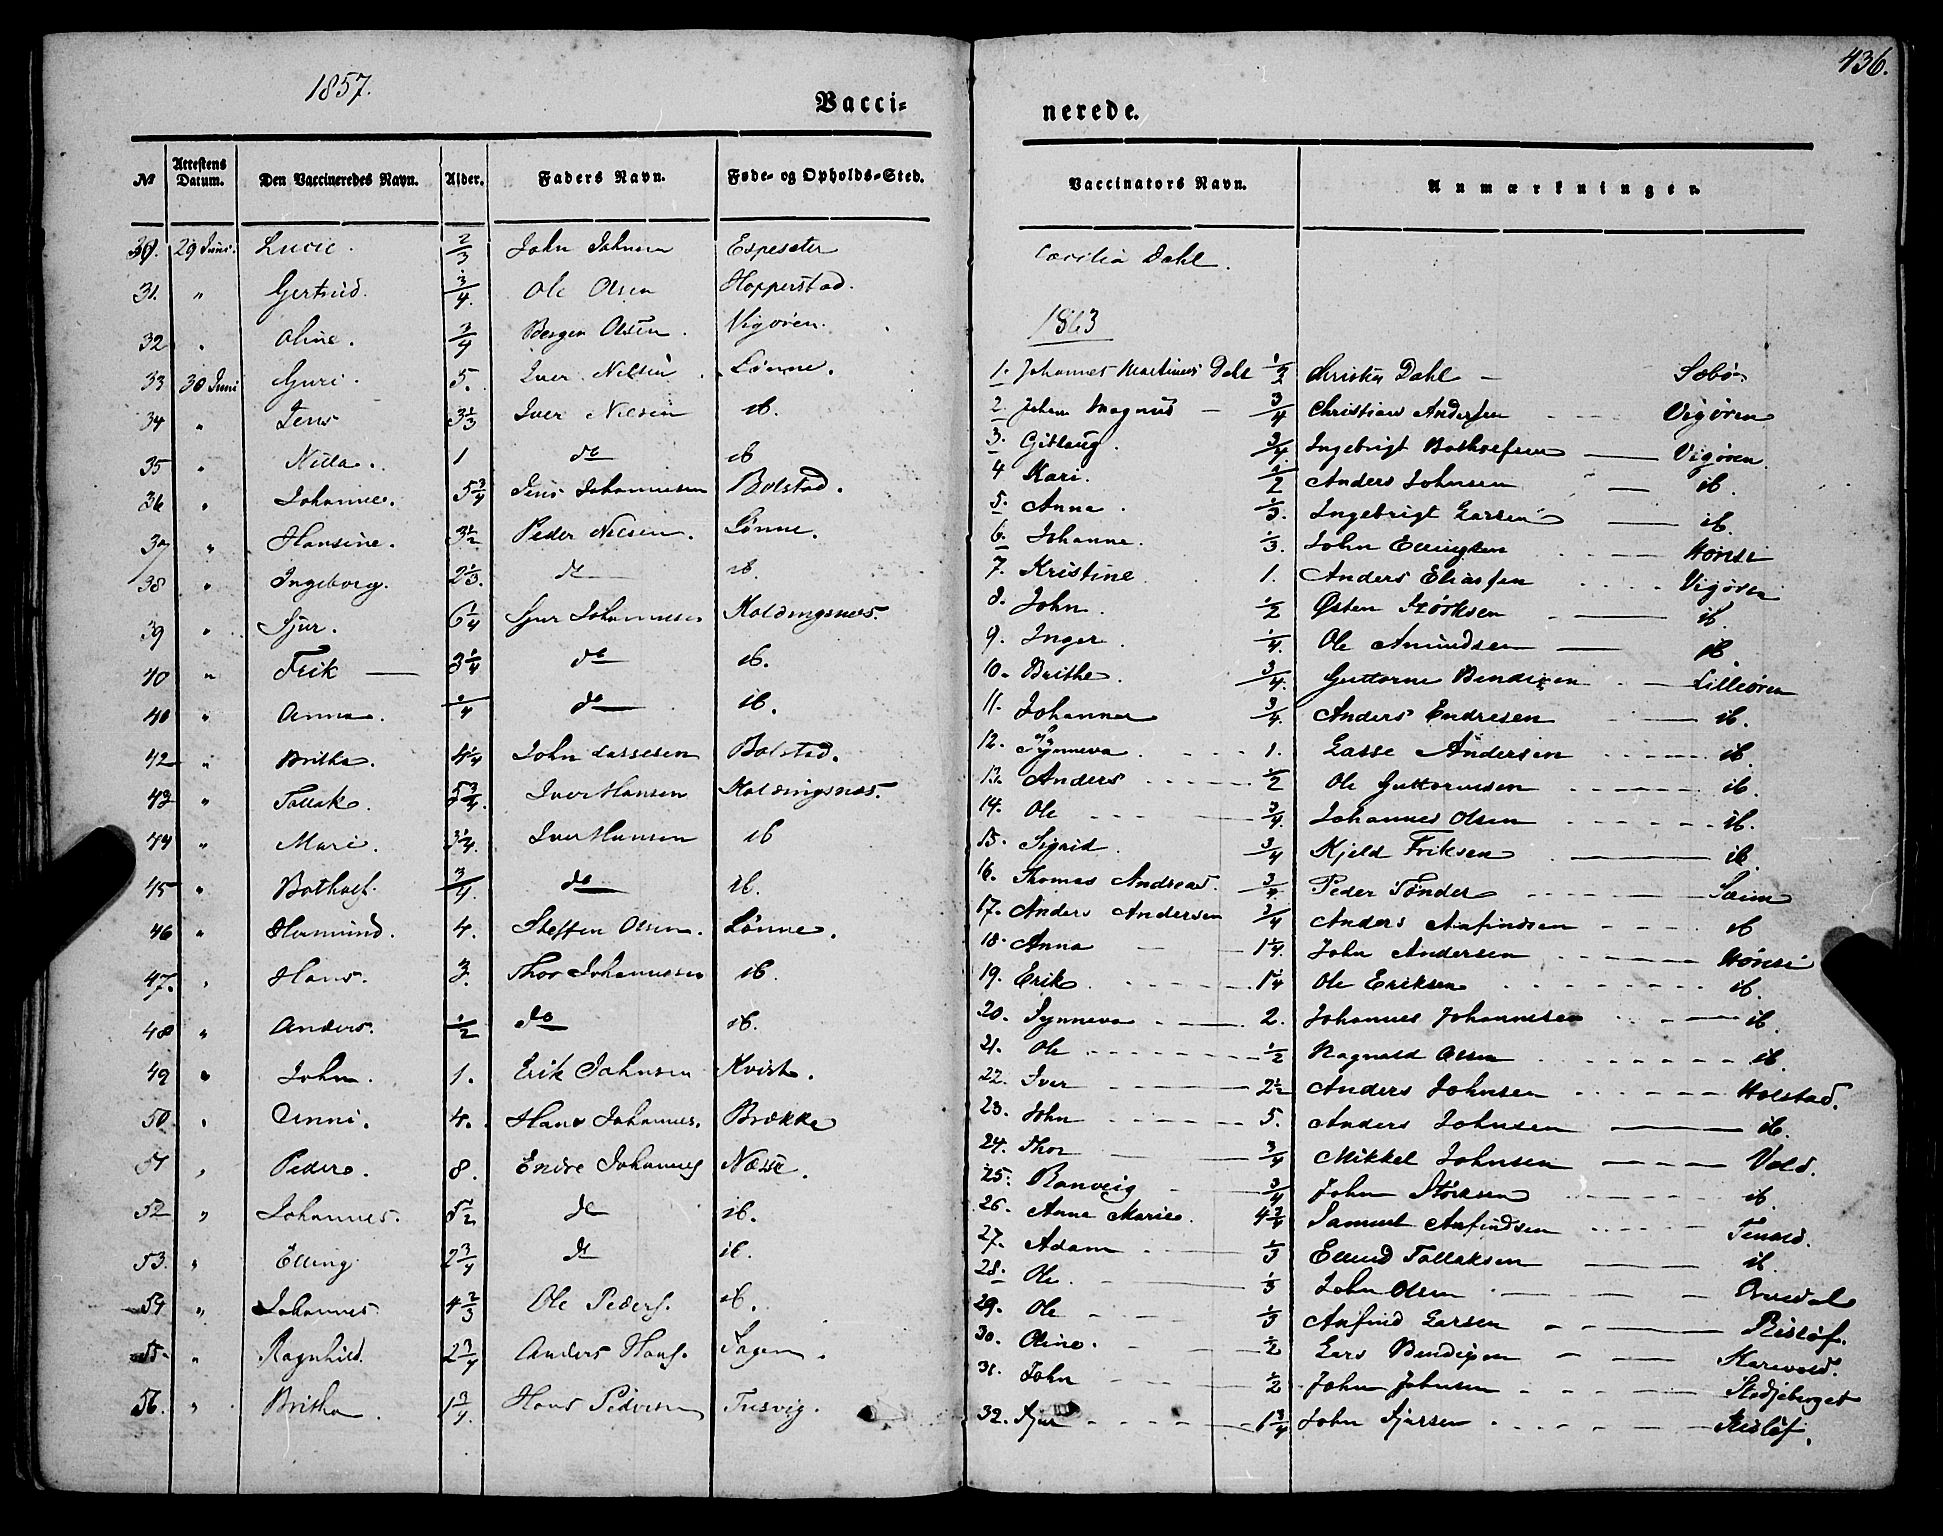 436.
1857.
Vacci-
nerede.
№ Attestens Datum. Den Vaccineredes Navn. Alder. Faders Navn. Føde- og Opholds-Sted.
30. 29 Juni. Lucie. 2/3 John Johnsen Espeseter
31. " Gertrud. 3/4. Ole Olsen Hopperstad.
32 " Oline. 3/4 Berger Olsen. Vigøren.
33 30 Juni Guri. 5. Iver Nilsen. Lønne.
34 " Jens 3 1/3 Iver Nielsen ib.
35 " Nilla. 1 do ib
36 " Johanne. 5 3/4 Jens Johannesen Bolstad.
37 " Hansine. 3 1/2 Peder Nilsen. Lønne.
38 " Ingeborg. 2 1/3. do ib.
39 " Sjur. 6 1/4 Sjur Johannesen Koldingsnæs.
40 " Erik — 3 1/4 do ib.
40 " Anna. 1/4 do ib.
42 " Britha. 4 1/4 John Lassesen Bolstad.
43 " Tollak. 5 3/4. Iver Hansen Koldingsnæs.
44 " Mari. 3 1/4. Iver Hansen ib
45 " Botholf. 3/4. do ib.
46 " Hermund. 4. Steffen Olsen. Lønne.
47. " Hans. 3. Thor Johannesen ib.
48 " Anders. 1/2 do ib.
49 " John. 1. Erik Johnsen Kvist.
50. " Anni. 4. Hans Johannes. Brække
51 " Peder. 8. Endre Johannes Næsse.
52 " Johannes. 5 1/2 do ib.
53. " Elling 2 3/4 do ib.
54 " Johannes 4 2/3 Ole Peders. ib.
55 " Ragnhild. 2 3/4 Anders Hans.
56. " Britha. 1 3/4 Hans Pedersen Tresvig.
Vaccinators Navn. Anmærkninger.
Cæcilia Dahl.
1863
1. Johannes Martinus Dahl 1/2 Christen Dahl — Sæbø
2. Johan Magnus — 3/4 Christian Andersen Vigøren
3. Gitlaug. 3/4 Ingebrigt Botholfsen — Vigøren.
4 Kari. 1/2 Anders Johnsen — ib.
5. Anna. 1/3. Ingebrigt Larsen — ib.
6. Johanne. 1/3. John Ellingsen Hønsi
7. Kristine 1. Anders Eliassen Vigøren
8. John. 1/2 Østen Størksen — ib.
9. Inger. 1/4. Ole Amundsen — ib.
10. Brithe. 3/4. Guttorm Bendixen — Lilleøren
11. Johanna 3/4. Anders Endresen — ib.
12. Synneva. 1. Lasse Andersen ib.
13. Anders 1/2 Ole Guttormsen ib.
14. Ole 3/4. Johannes Olsen ib.
15. Sigrid. 3/4 Kjeld Eriksen — ib
16. Thomas Andreas. 3/4. Peder Tønder Sæim
17. Anders Andersen 3/4 Anders Anfindsen ib
18. Anna 1 1/4. John Andersen Hønsi
19. Erik. 1 1/4 Ole Eriksen ib.
20. Synneva. 2. Johannes Johannesen ib.
21. Ole 1/2 Ragnald Olsen ib.
22. Iver 2 1/2 Anders Johnsen Holstad.
23. John 5. Anders Johnsen — ib.
24. Thor 3/4 Mikkel Johnsen Vold.
25. Ranveig 3/4 John Størksen ib
26. Anne Marie. 4 3/4 Samuel Anfindsen
27. Adam 1/3 Ellend Tollaksen — ib.
28. Ole. 1/3 John Olsen
29. Ole 1/3 Anfind Larsen Risløf.
30. Oline. 1/2 Lars Bendixen
31. John 1/2 John Johnsen Stedjeberget
32. Sjur 1 3/4 John Sjursen Risløf.